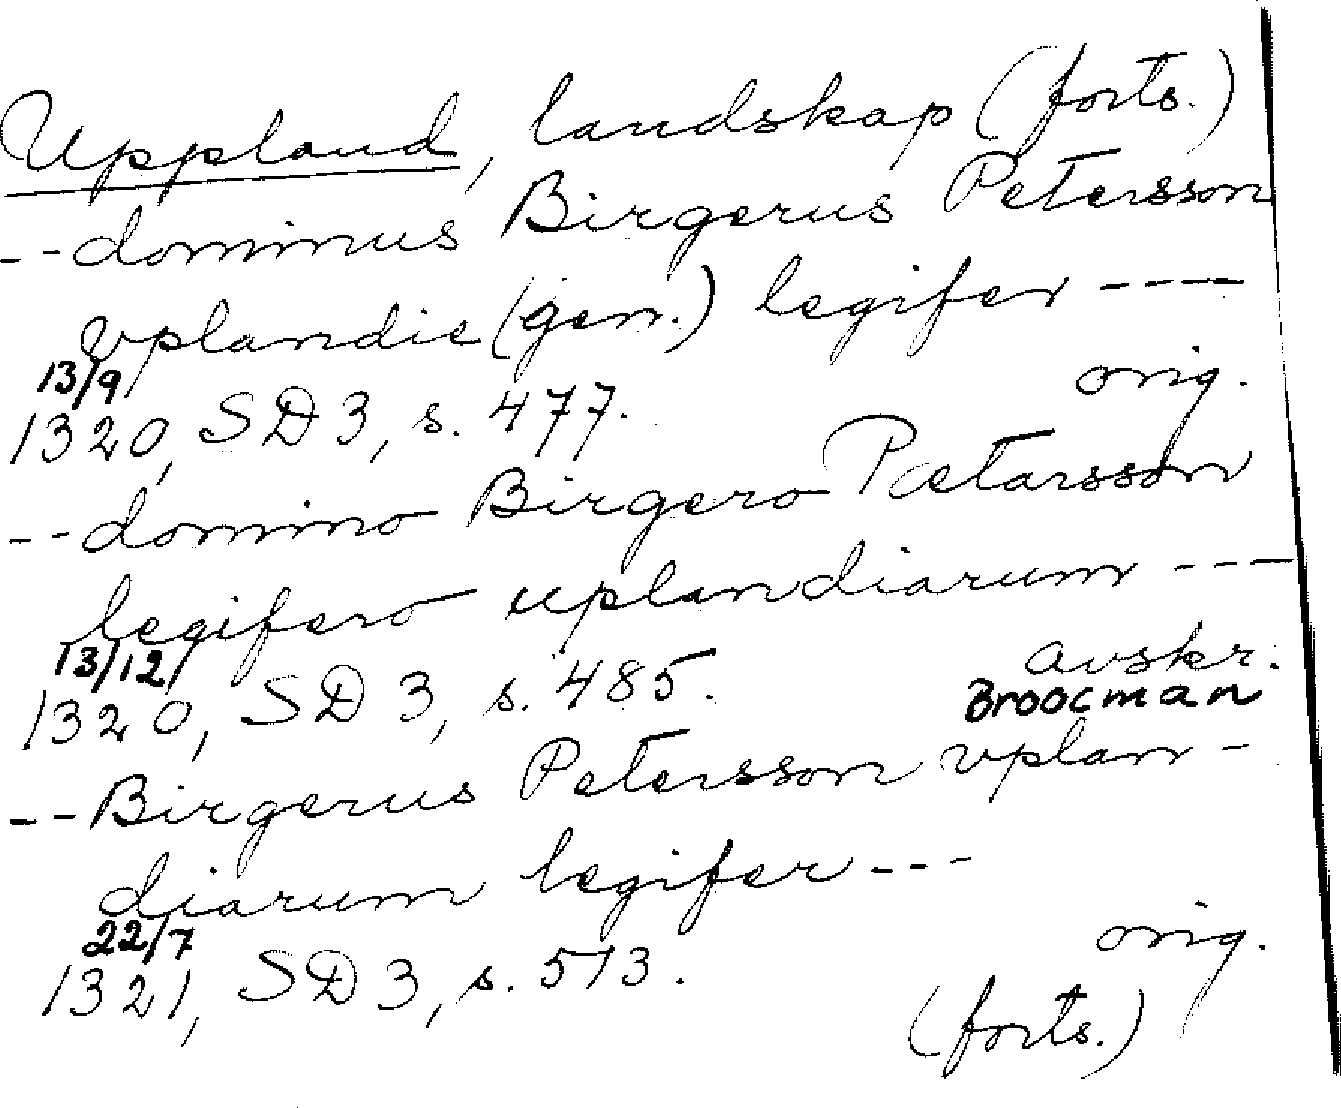 Uppland, landskap (forts.)
--dominus Birgerus Petersson
vplandie (gen.) legifer ----
13/9
1320, SD 3, s. 477. orig.
--domino Birgero Pætarsson
legifero uplandiarum ---
13/12
1320, SD 3, s. 485. avskr.
Broocman
--Birgerus Petersson vplan-
diarum legifer ---
22/7
1321, SD 3, s. 513. orig.
(forts.)